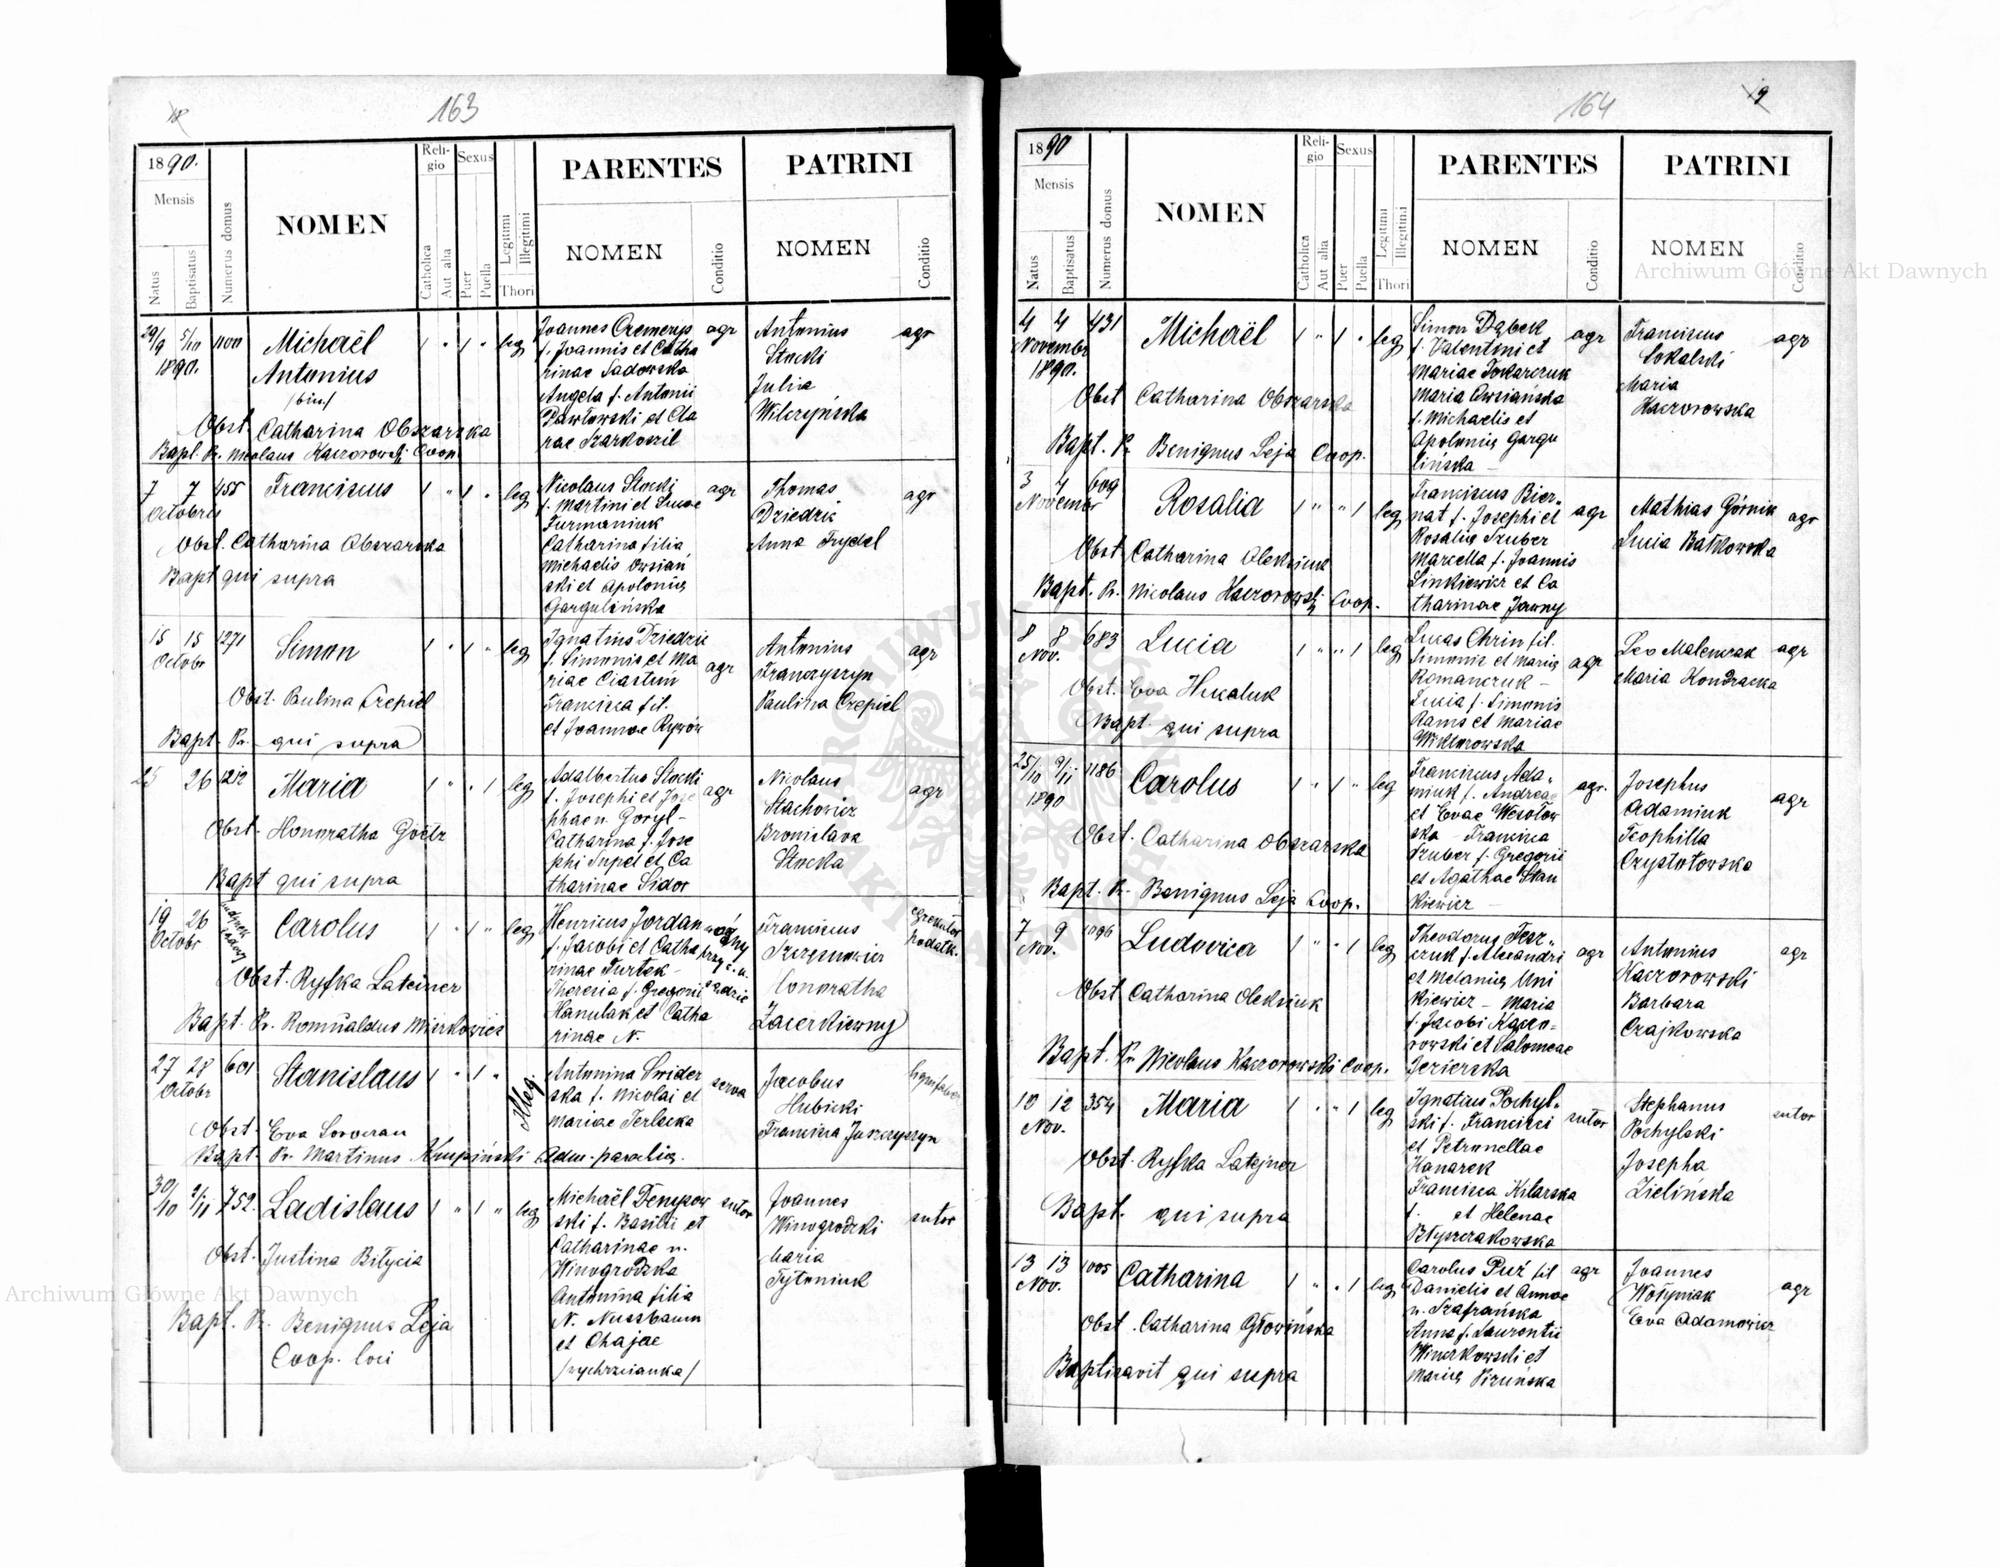 163
1890.
Mensis
Natus
Baptisatus
Numerus domus
NOMEN
Religio
Catholica
Aut alia
Sexus
Puer
Puella
Legitimi
Illegitimi
Thori
PARENTES
NOMEN
Conditio
PATRINI
NOMEN
Conditio
29/9 5/10 1100 Michaël 1 " 1 " leg
1890.
Antonius
/bin/
Obst. Catharina Obszarska
Bapt. Pr. Nicolaus Kaczorowski Coop.
Joannes Cremerys agr
f. Joannis et Catha
rinae Sadowska
Angela f. Antonii
Pawłowski et Cla
rae Szarkoszil
Antonius agr
Stocki
Julia
Wilczyńska
7 7 455 Franciscus 1 " 1 " leg
Octobris
Obst. Catharina Obszarska
Bapt qui supra
Nicolaus Stocki agr
f. Martini et Luciae
Furmaniuk
Catharina filia
Michaelis Owsian
ski et Apoloniae
Gargulińska
Thomas agr
Dziedzic
Anna Frydel
15 15 1271 Simon 1 " 1 " leg
Octobr
Obst. Paulina Czepiel
Bapt. Pr. qui supra
Ignatius Dziedzic
f. Simonis et Ma
riae Ciastuń agr
Francisca fil.
et Joannae Rywów
Antonius agr
Franczyszyn
Paulina Czepiel
25 26 1212 Maria 1 " " 1 leg
Obst. Honoratha Göetz
Bapt qui supra
Adalbertus Stocki agr
f. Josephi et Joze
phae n. Goryl -
Catharina f. Jose
phi Supel et Ca
tharinae Sidor
Nicolaus agr
Stachowicz
Bronislava
Stocka
19 26 Carolus 1 " 1 " leg
Octobr
Obst. Ryfka Lateiner
Bapt. Pr. Romualdus Mierkowicz
Henricus Jordan woźny
f. Jacobi et Catha przy c. u.
rinae Furtak -
Theresia f. Gregorii
Hanulak et Catha
rinae N.
Franciscus
Szczęsnowicz
Honoratha
Zacerkiewny
27 28 601 Stanislaus 1 " 1 " Illeg
Octobr
Obst. Eva
Bapt. Pr. Martinus Krupiński Adm. parochiae.
Antonina Swider serva
ska f. Nicolai et
Mariae Terlecka
Jacobus lignifaber
Hubicki
Francisca Juszczyszyn
30/10 2/11 752. Ladislaus 1 " 1 " leg
Obst. Justina Bilycia
Bapt. Pr. Benignus Leja
Coop. loci
Michaël Denysow sutor
ski f. Basilii et
Catharinae n.
Winogrodzka
Antonina filia
N. Nussbaum
et Chajae
/wychrzcianka/
Joannes
Winogrodzki sutor
Maria
Tytoniuk
164
9
1890
Mensis
Natus
Baptisatus
Numerus domus
NOMEN
Religio
Catholica
Aut alia
Sexus
Puer
Puella
Legitimi
Illegitimi
Thori
PARENTES
NOMEN
Conditio
PATRINI
NOMEN
Conditio
4 4 431 Michaël 1 " 1 " leg
Novembr
1890.
Obst Catharina Obszarska
Bapt. Pr. Benignus Leja Coop.
Simon Dąbek agr
f. Valentini et
Mariae Tokarczuk
Maria Owsiańska
f. Michaelis et
Apoloniae Gargu
lińska -
Franciscus agr
Sokalski
Maria
Kaczorowska
3 4 609 Rosalia 1 " " 1 leg
Novembr
Obst. Catharina Oleksiuk
Bapt. Pr. Nicolaus Kaczorowski Coop.
Franciscus Bier-
nat f. Josephi et agr
Rosaliae Szuber
Marcella f. Joannis
Sinkiewicz et Ca
tharinae Jawny
Mathias Górnik agr
Lucia Bałkowska
8 8 683 Lucia 1 " " 1 leg
Nov.
Obst. Eva Hukaluk
Bapt. qui supra
Lucas Chrin fil.
Simonis et Mariae agr
Romanczuk -
Lucia f. Simonis
Rams et Mariae
Wiktorowska
Leo Malenczak agr
Maria Kondracka
25/10 9/11 1186 Carolus 1 " 1 " leg
1890
Obst. Catharina Obszarska
Bapt. Pr. Benignus Leja Coop.
Franciscus Ada- agr.
miuk f. Andreae
et Evae Wesołow
ska - Francisca
Szuber f. Gregorii
et Agathae Stan
kiewicz -
Josephus agr
Adamiuk
Teophilla
Czystołowska
7 9 1096 Ludovica 1 " " 1 leg
Nov.
Obst Catharina Oleksiuk
Bapt. Pr. Nicolaus Kaczorowski Coop.
Theodorus Tesz-
czuk f. Alexandri agr
et Melaniae Uni
kiewicz - Maria
f. Jacobi Kaczo-
rowski et Salomeae
Jezierska
Antonius agr
Kaczorowski
Barbara
Czajkowska
10 12 354 Maria 1 " " 1 leg
Nov.
Obst. Ryfka Latejner
Bapt. qui supra
Ignatius Pochyl-
ski f. Francisci sutor
et Petronellae
Kanarek
Francisca Kilarska
f. et Helenae
Błyszczakowska
Stephanus sutor
Pochylski
Josepha
Zielińska
13 13 1005 Catharina 1 " " 1 leg
Nov.
Obst. Catharina Głowińska
Baptizavit qui supra
Carolus Puź fil agr
Danielis et Annae
n. Szafrańska
Anna f. Laurentii
Winerkowski et
Mariae Pizuńska
Joannes agr
Wołyniak
Eva Adamowicz
Archiwum Główne Akt Dawnych
Archiwum Główne Akt Dawnych